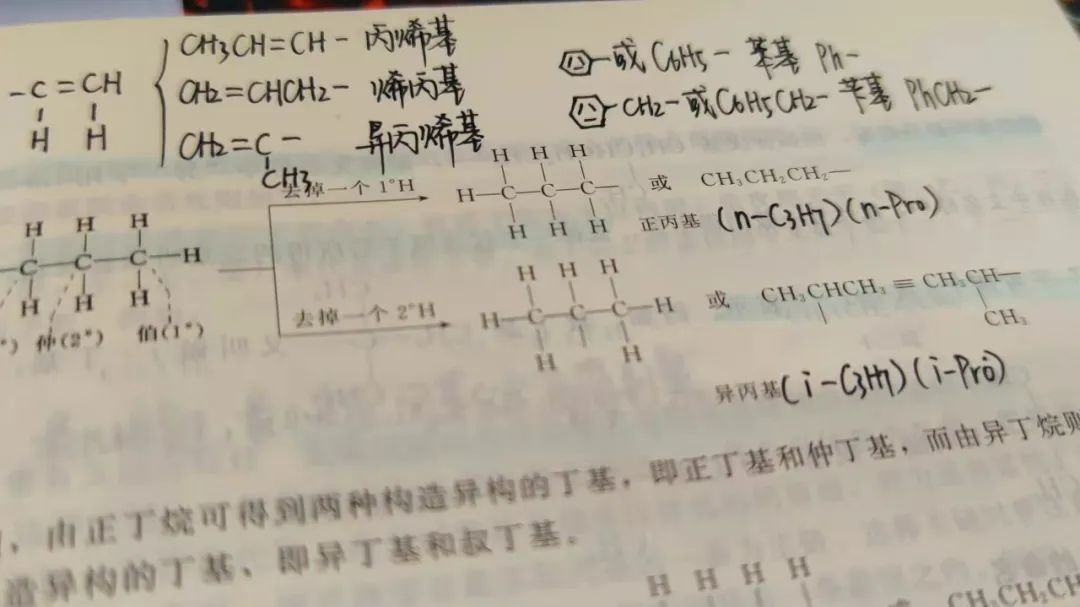 CH3CH=CH- 丙烯基
-C=CH
H H
CH2=CHCH2- 烯丙基
CH2=C- 异丙烯基
CH3
-或 C6H5- 苯基 Ph-
-CH2-或C6H5CH2- 苄基 PhCH2-
去掉一个 1°H
H H H
H—C—C—C—
H H H
或 CH₃CH₂CH₂—
正丙基 (n-C3H7)(n-Pro)
H H H
—C—C—C—H
H H H
仲(2°) 伯(1°)
去掉一个 2°H
H H H
H—C—C—C—H
H H
或 CH₃CHCH₃ ≡ CH₃CH—
CH₃
异丙基(i-C3H7)(i-Pro)
，由正丁烷可得到两种构造异构的丁基，即正丁基和仲丁基，而由异丁烷则
造异构的丁基、即异丁基和叔丁基。
H H H H
CH₃CH₂CH